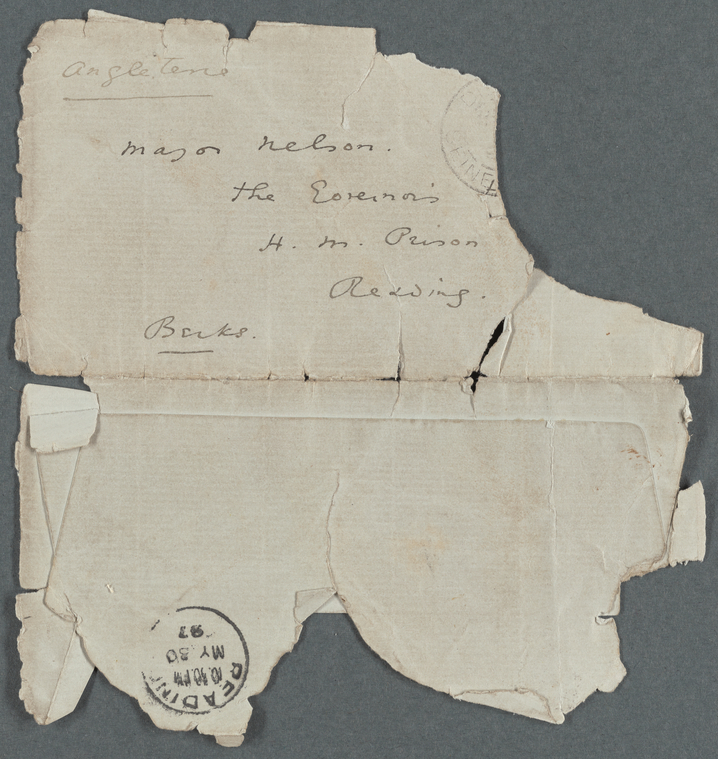 Angleterre
Major Nelson.
The Governor's
H. M. Prison
Reading.
Berks.
READIN
10.30 PM
MY 30
97